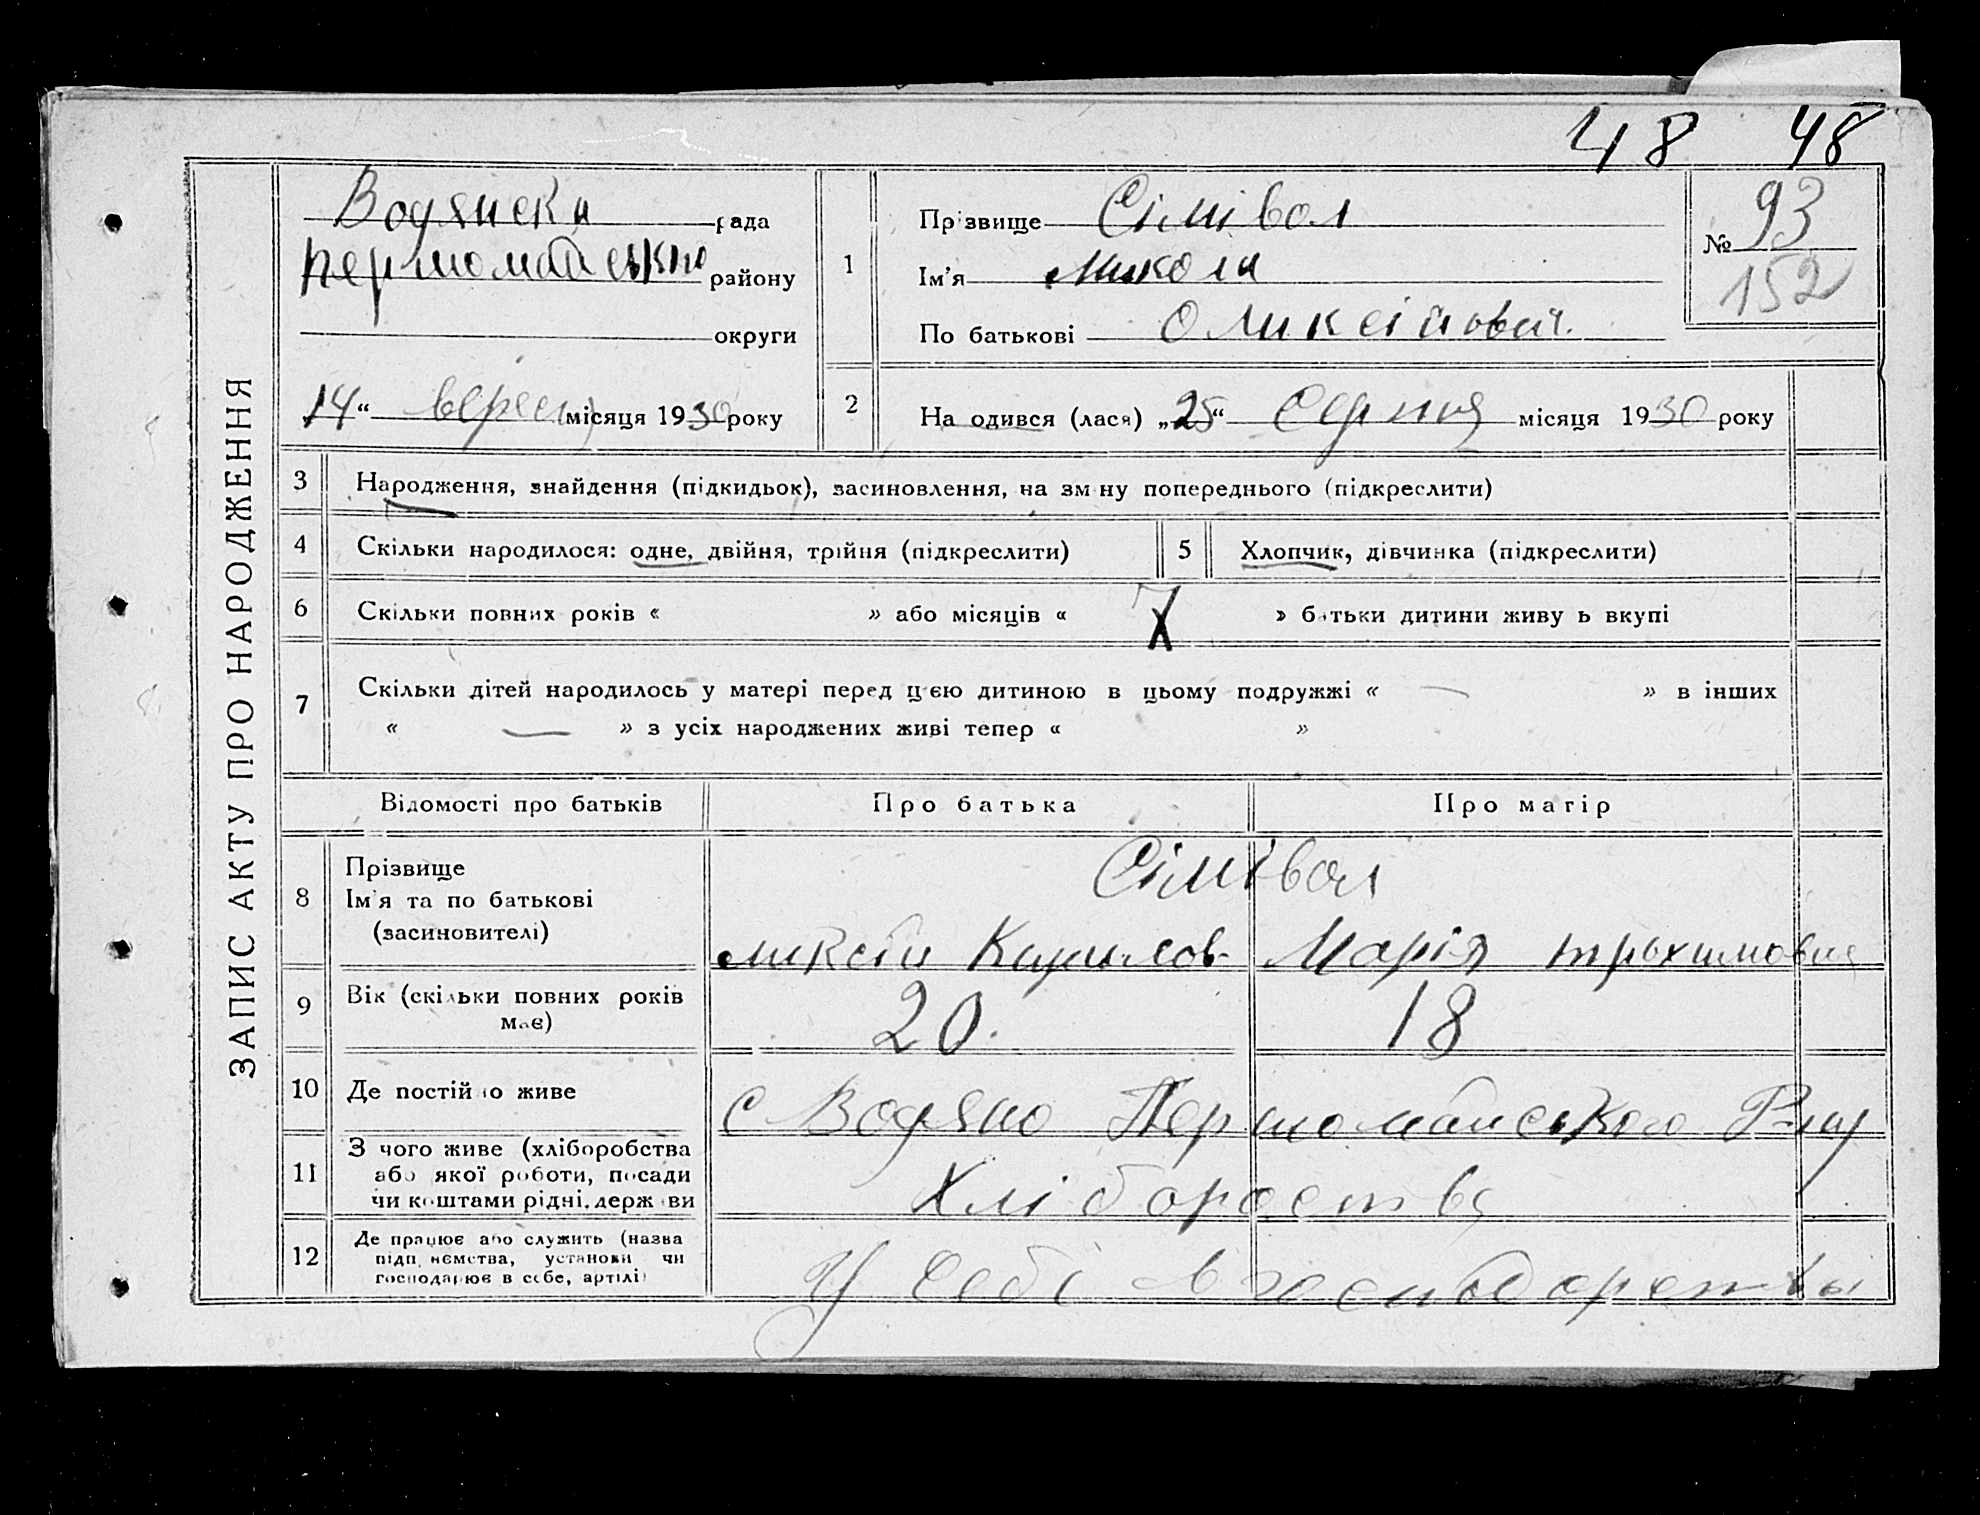 48 48
ЗАПИС АКТУ ПРО НАРОДЖЕННЯ
Водянска рада
Першомайського району
округи
14 “ верес місяця 1930 року
1
Прізвище Сімівол
Ім’я Микола
По батькові Оликсійович.
№ 93
152
2
На одився (лася) „25“ Серпня місяця 1930 року
3 Народження, знайдення (підкидьок), засиновлення, на зм ну попереднього (підкреслити)
4 Скільки народилося: одне, двійня, трійня (підкреслити) 5 Хлопчик, дівчинка (підкреслити)
6 Скільки повних років « » або місяців « 7 » батьки дитини живу ь вкупі
7 Скільки дітей народилось у матері перед цією дитиною в цьому подружжі « — » в інших
« — » з усіх народжених живі тепер « »
Відомості про батьків Про батька Про матір
8 Прізвище
Ім’я та по батькові
(засиновителі)
Сімівол
Марія Трохимовна
9 Вік (скільки повних років має) 20. 18
10 Де постійно живе с Водяно Першомайського
11 З чого живе (хліборобства або якої роботи, посади чи коштами рідні, держави Хліборобства
12 Де працює або служить (назва підп ємства, установи чи господарює в себе, артілі) У себі в